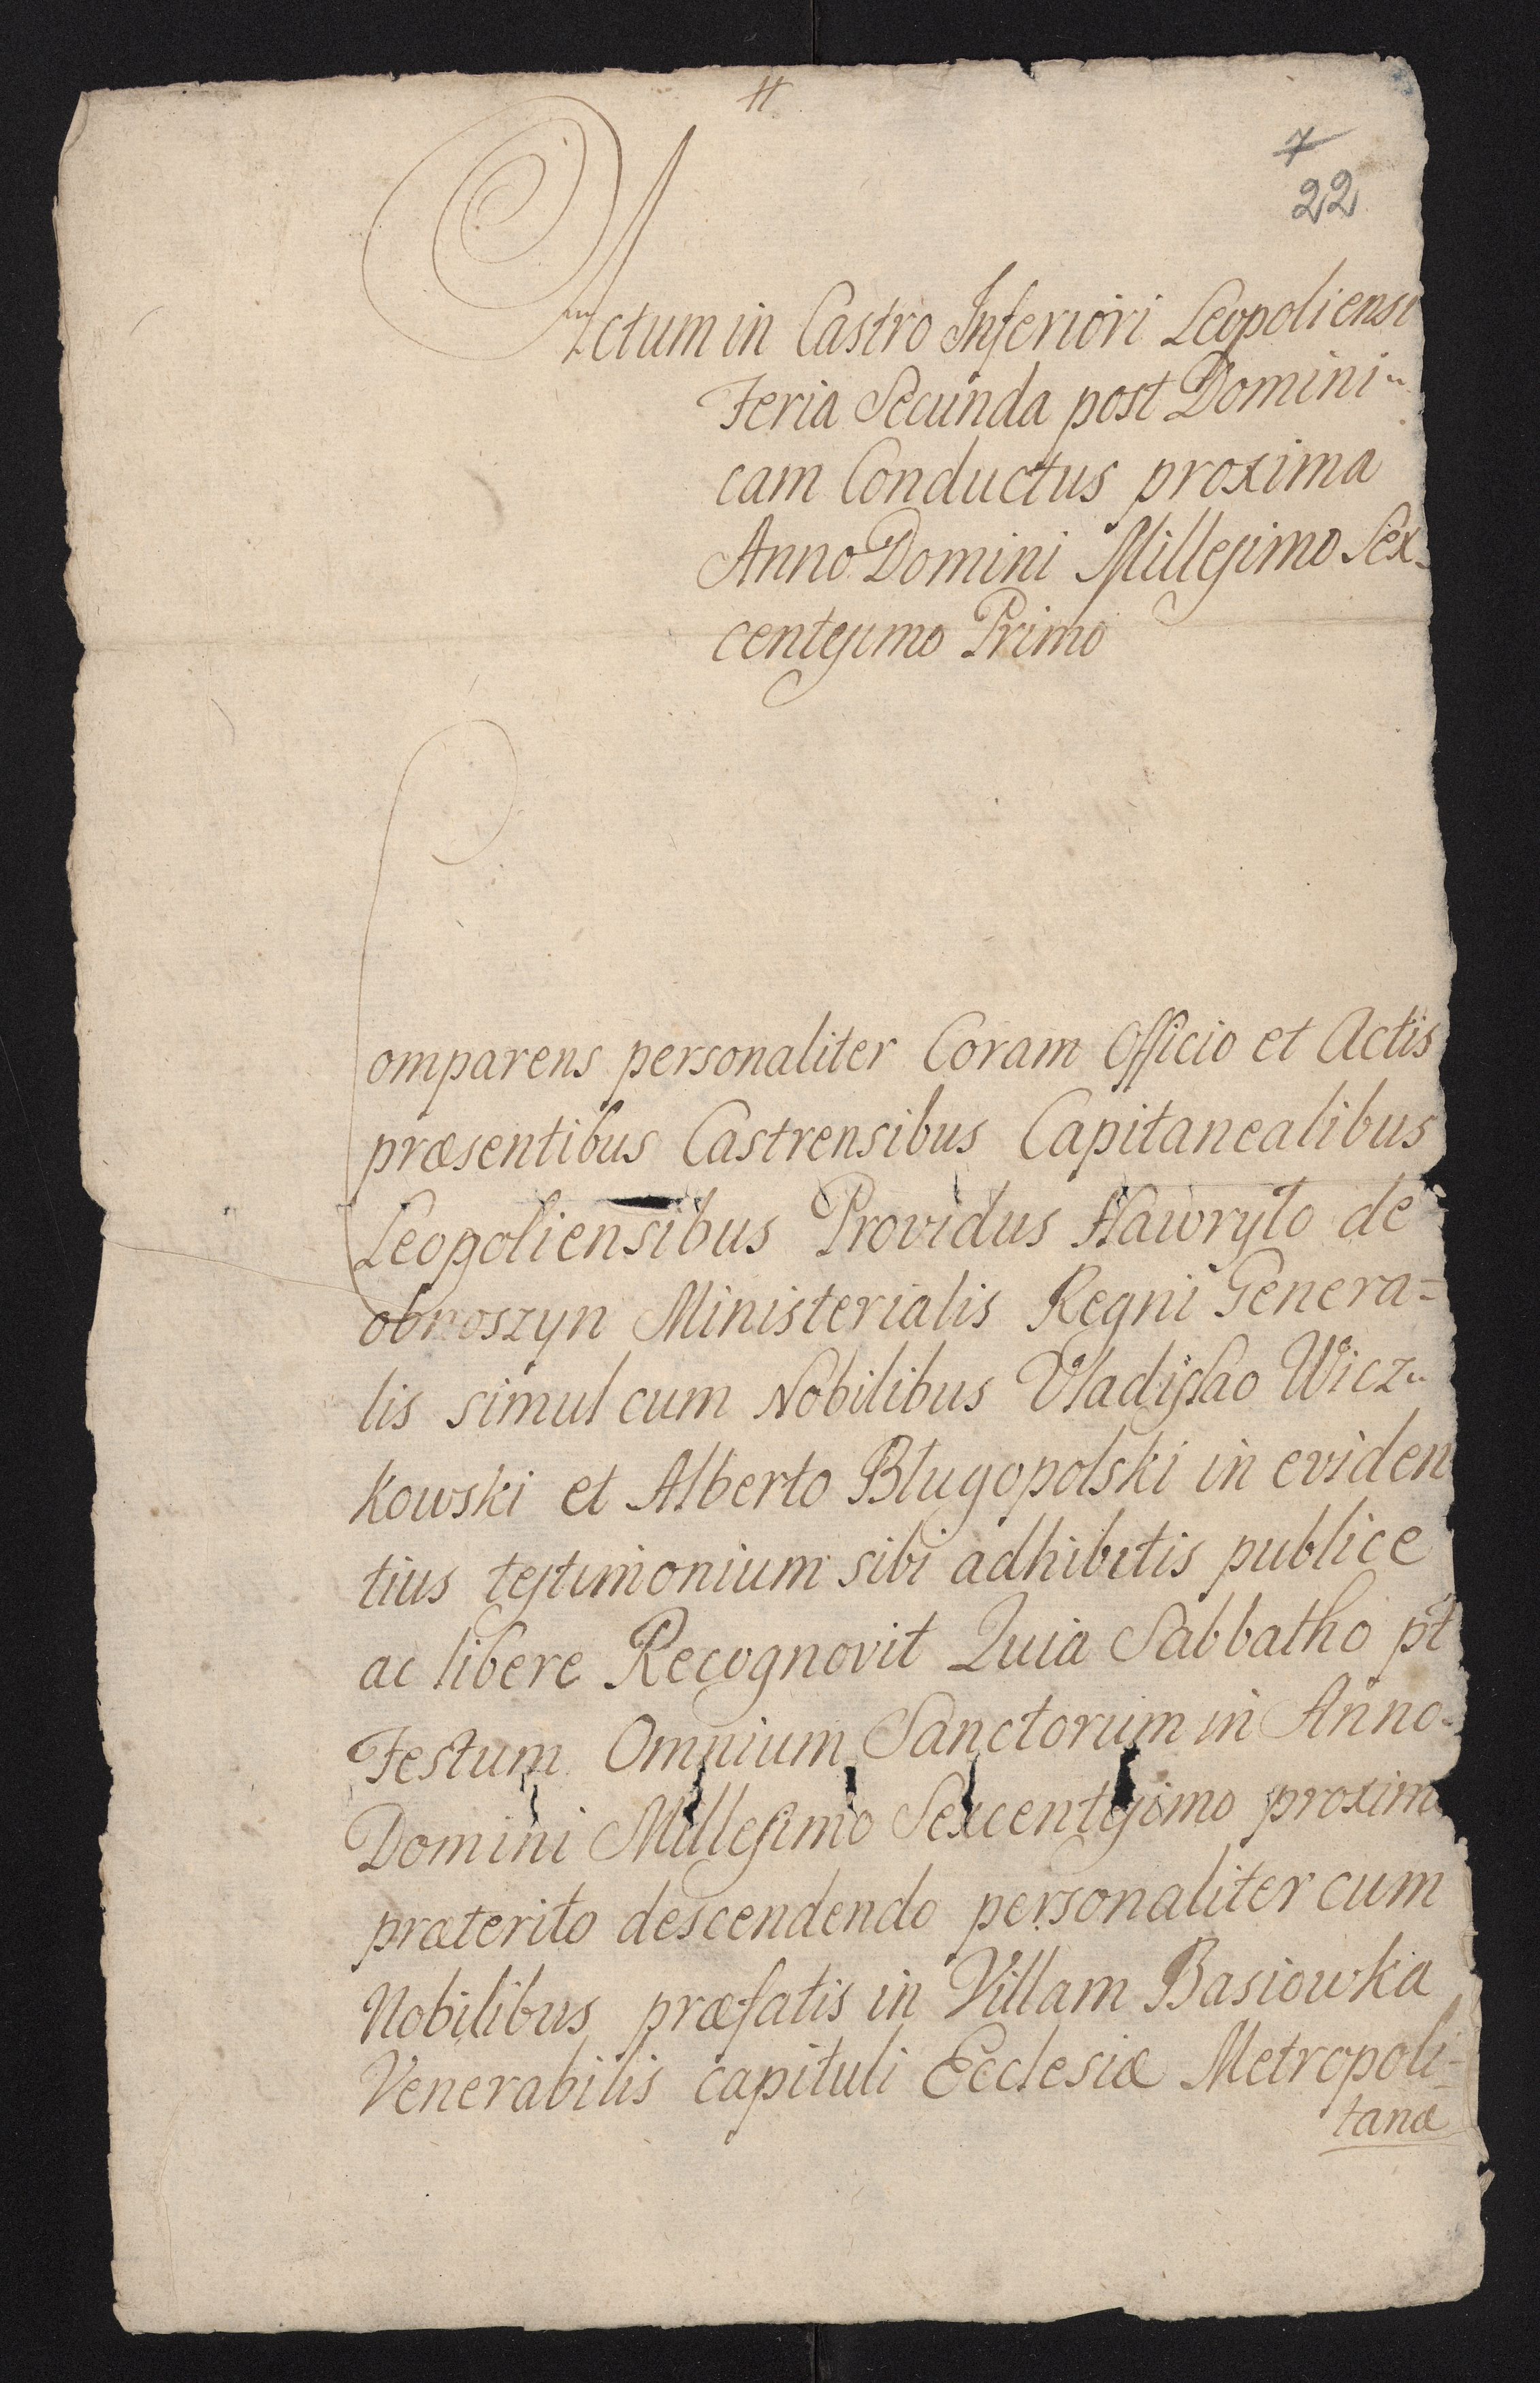 #
7
22
Actum in Castro Inferiori Leopoliensi
Feria Secunda post Domini-
cam Conductus proxima
Anno Domini Millesimo Sex-
centesimo Primo
Comparens personaliter Coram Officio et Actis
præsentibus Castrensibus Capitanealibus
Leopoliensibus Providus Hawryło de
obroszyn Ministerialis Regni Genera-
lis simul cum Nobilibus Vladislao Wicz-
kowski et Alberto Długopolski in eviden
tius testimonium sibi adhibitis publice
ac libere Recognovit Quia Sabbatho pt
Festum Omnium Sanctorum in Anno-
Domini Millesimo Sexcentesimo proxime
præterito descendendo personaliter cum
Nobilibus præfatis in Villam Basiowka
Venerabilis capituli Ecclesiæ Metropoli-
tanæ